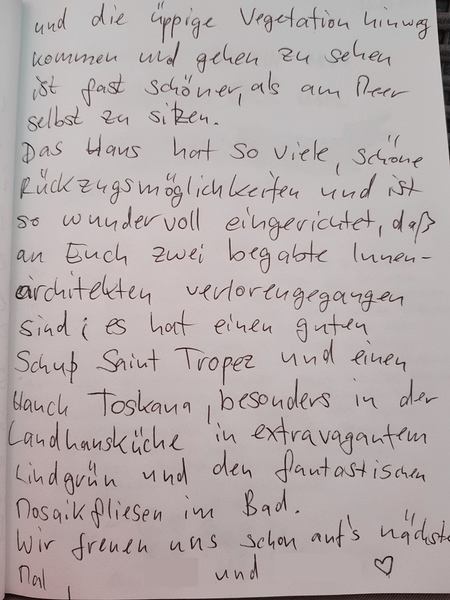 und die üppige Vegetation hinweg
kommen und gehen zu sehen
ist fast schöner, als am Meer
selbst zu sitzen.
Das Haus hat so viele, schöne
Rückzugsmöglichkeiten und ist
so wundervoll eingerichtet, daß
an Euch zwei begabte Innen-
architekten verlorengegangen
sind; es hat einen guten
Schuß Saint Tropez und einen
Hauch Toskana, besonders in der
Landhausküche in extravagantem
Lindgrün und den fantastischen
Mosaikfliesen im Bad.
Wir freuen uns schon auf's nächste
Mal, und ♡